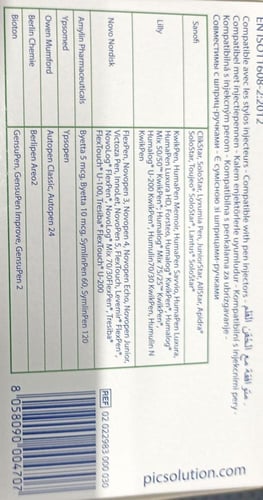 EN ISO11608-2:2012
Compatible avec les stylos injecteurs - Compatible with pen injectors - متوافقة مع الحقن القلم -
Compatibel met injectiepennen - Kalem enjektörlerle uyumludur - Kompatibilní s injekčními pery -
Kompatibilná s injekčným perom - Kompatibilni s penkalama za ubrizgavanje -
Совместимы с шприц-ручками - Є сумісною зі шприцами-ручками
Sanofi
ClikStar, SoloStar, Lyxumia Pen, JuniorStar, AllStar, Apidra®
SoloStar, Toujeo® SoloStar®, Lantus® SoloStar®
Lilly
KwikPen, HumaPen Memoir, HumaPen Savvio, HumaPen Luxura,
HumaPen Luxura HD, Forsteo, Humalog® KwikPen®, Humalog®
Mix 50/50™ KwikPen®, Humalog® Mix 75/25™ KwikPen®,
Humalog® U-200 KwikPen®, Humulin70/30 KwikPen, Humulin N
KwikPen
Novo Nordisk
FlexPen, Novopen 3, Novopen 4, Novopen Echo, Novopen Junior,
Victoza Pen, InnoLet, NovoPen 5, FlexTouch, Levemir® FlexPen®,
NovoLog® FlexPen®, NovoLog® Mix 70/30FlexPen®, Tresiba®
FlexTouch® U-100, Tresiba® FlexTouch® U-200
Amylin Pharmaceuticals
Byetta 5 mcg, Byetta 10 mcg, SymlinPen 60, SymlinPen 120
Ypsomed
Ypsopen
Owen Mumford
Autopen Classic, Autopen 24
Berlin Chemie
Berlipen Areo2
Bioton
GensuPen, GensuPen Improve, GensuPen 2
REF 02 022983 000 030
8 058090 004707
picsolution.com